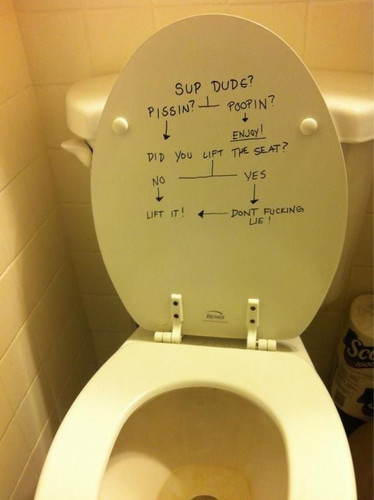 SUP DUDE?
PISSIN? POOPIN?
ENJOY!
DID YOU LIFT THE SEAT?
NO YES
LIFT IT! DONT FUCKING
LIE!
BEMIS
Sco